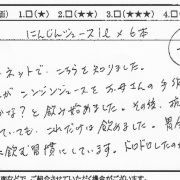 1.□(★) 2.□(★★) 3.□(★★★) 4.□
にんじんジュース1ℓ×6本
ネットで、こちらを知りました。
がニンジンジュースをお母さんの手作
かな?と飲み始めました。その後、
ても、これだけは飲めました。胃
に飲む習慣にしています。ドロドロしたの
面などで、ご紹介させていただく場合がござい